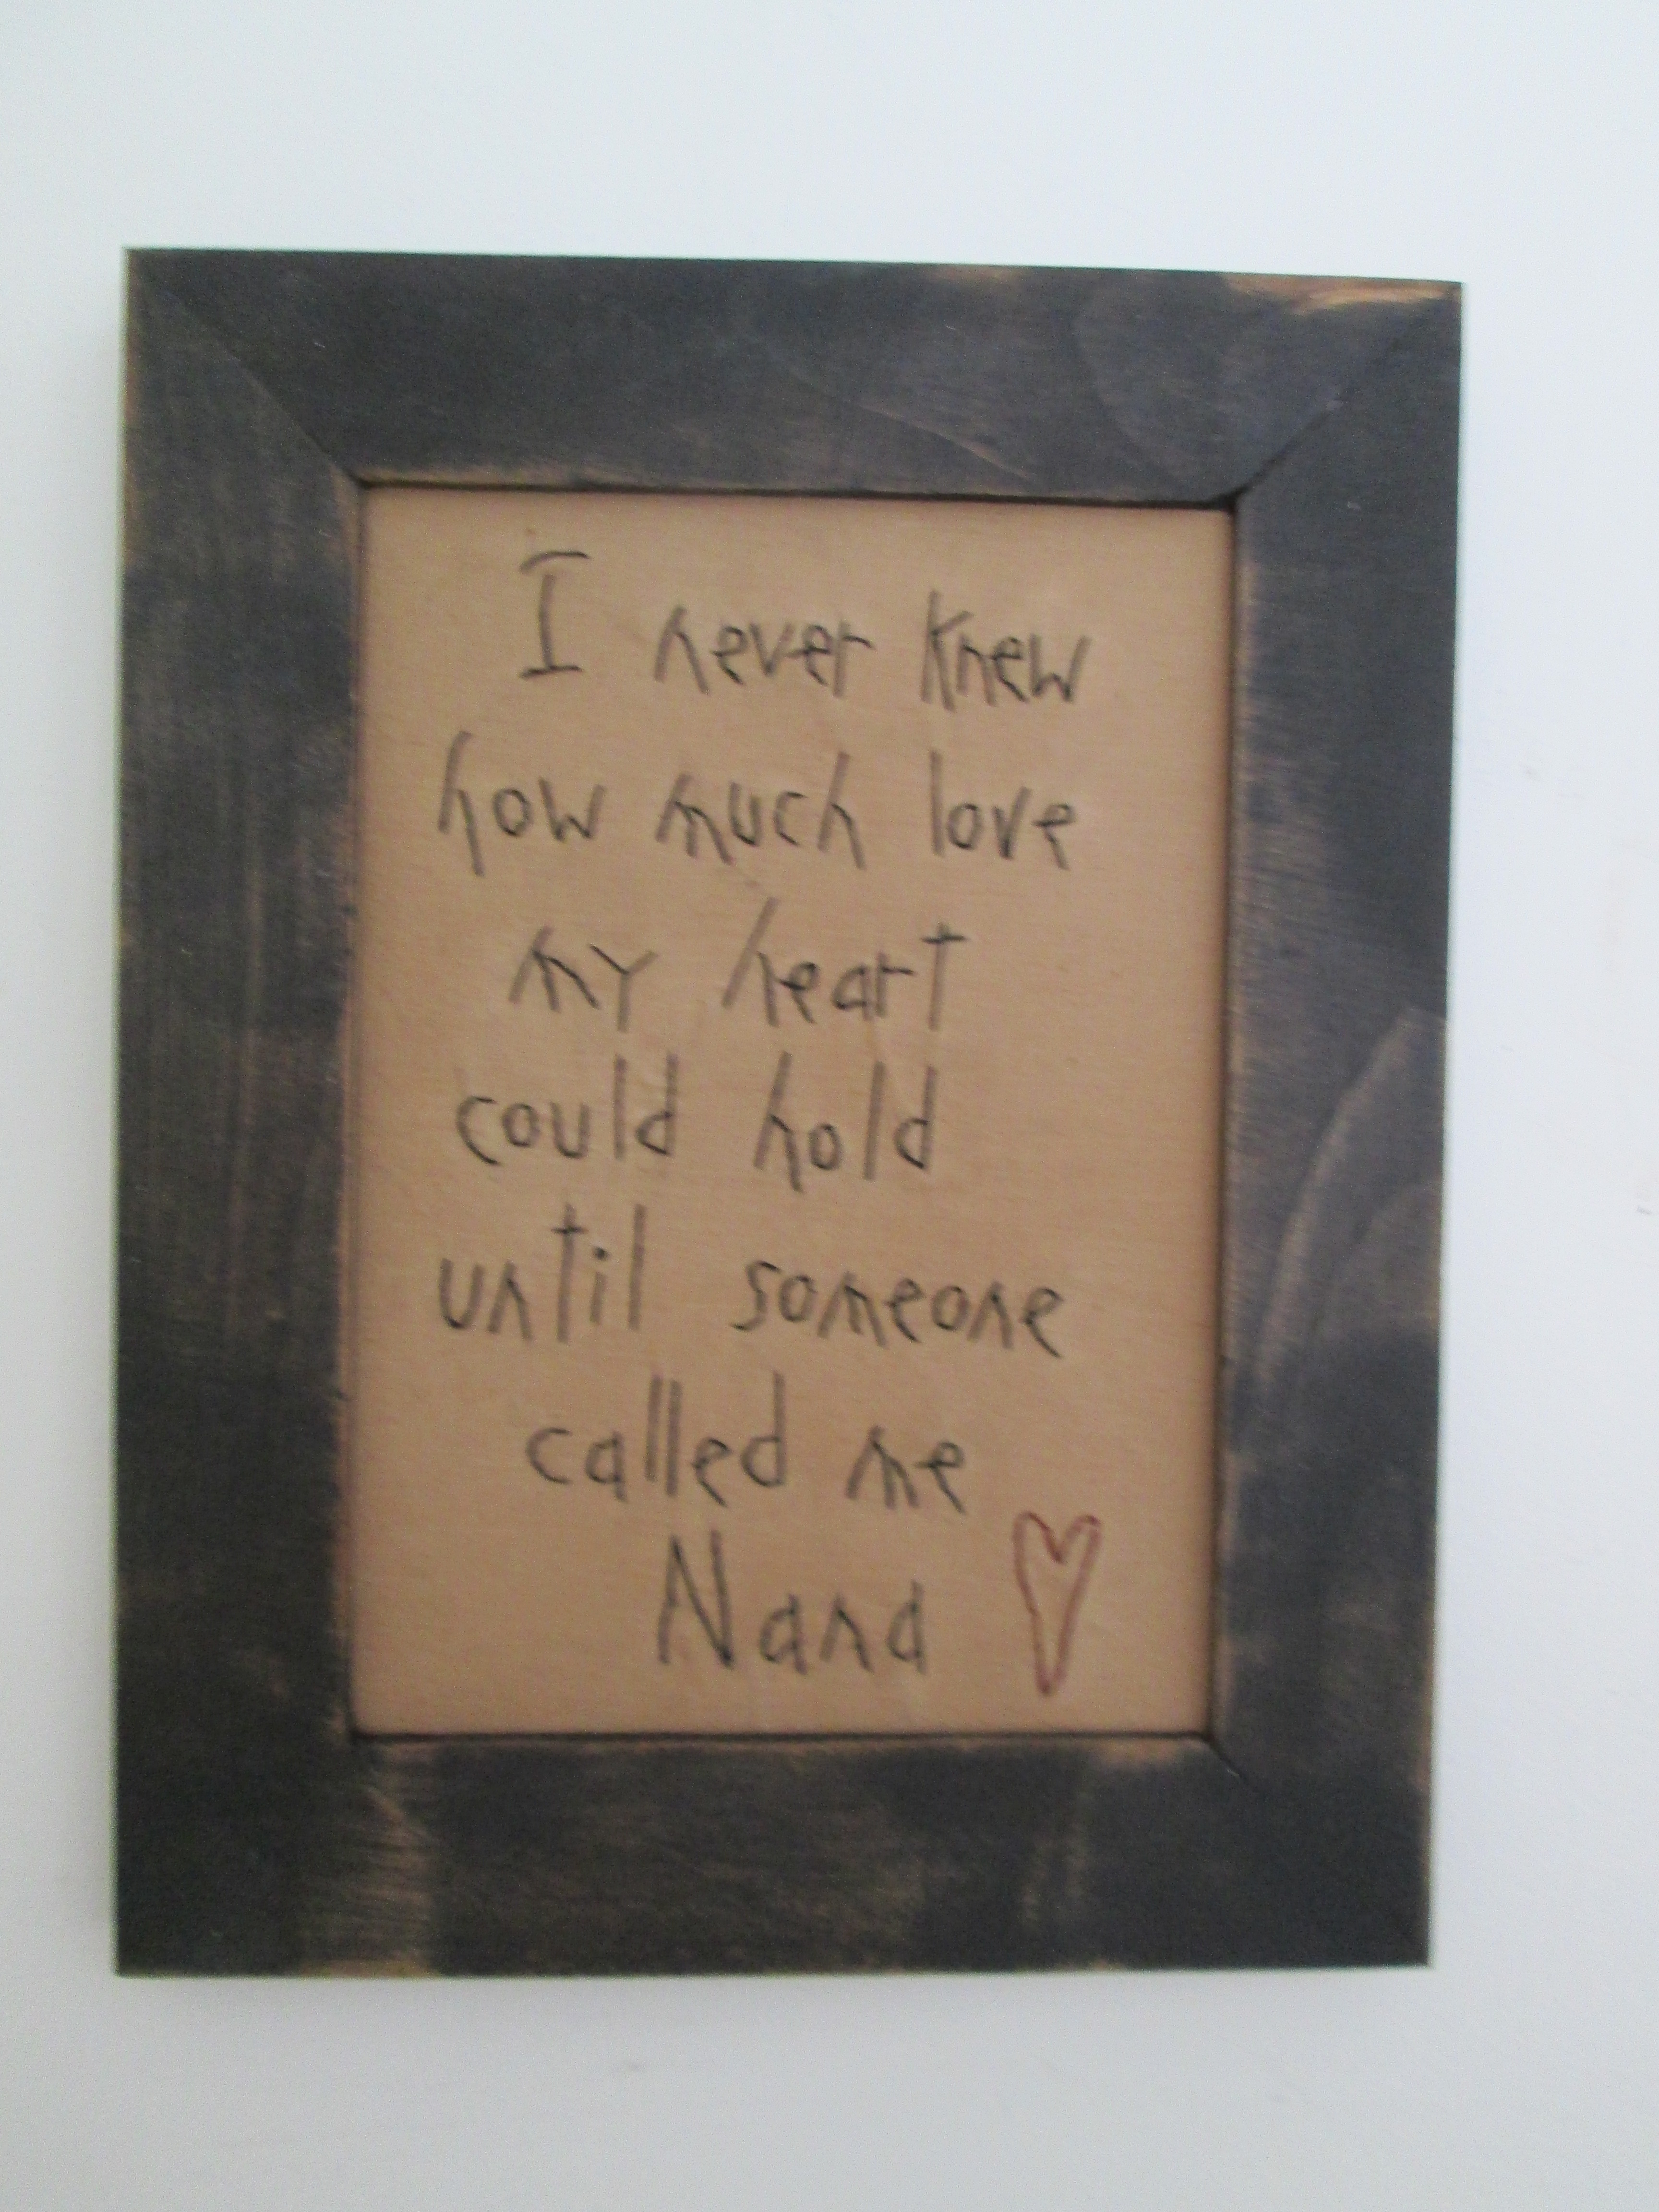 I never knew
how much love
my heart
could hold
until someone
called me
Nana